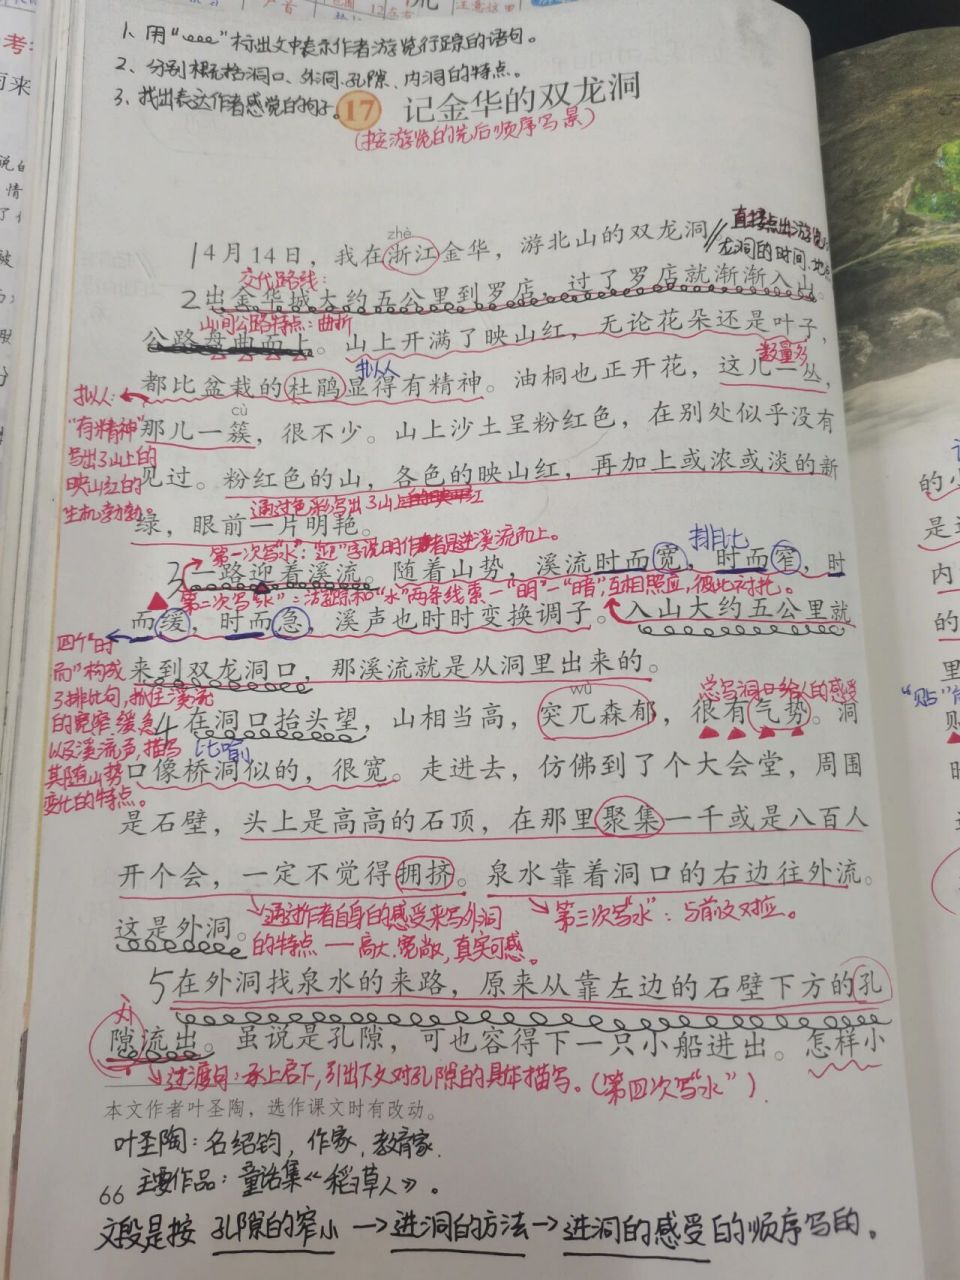 1、用“﹏﹏”标出文中表示作者游览行踪的语句。
2、分别概括洞口、外洞、孔隙、内洞的特点。
3、找出表达作者感觉的句子。
17 记金华的双龙洞
(按游览的先后顺序写景)
zhè
直接点出游览
龙洞的时间、地
1 4月14日，我在浙江金华，游北山的双龙洞
交代路线：
2 出金华城大约五公里到罗店，过了罗店就渐渐入山。
山间公路特点：曲折
公路盘曲而上。山上开满了映山红，无论花朵还是叶子，
拟人
数量多
都比盆栽的杜鹃显得有精神。油桐也正开花，这儿一丛，
拟人：
“有精神”
写出了山上的
映山红的
生机勃勃。
cù
那儿一簇，很不少。山上沙土呈粉红色，在别处似乎没有
见过。粉红色的山，各色的映山红，再加上或浓或淡的新
通过色彩写出了山上
绿，眼前一片明艳。
第一次写“水”：“迎”字说明作者是逆溪流而上。
排比
3 一路迎着溪流。随着山势，溪流时而宽，时而窄，时
第二次写“水”：游踪和“水”两条线索一“明”一“暗”，互相照应，彼此衬托。
而缓，时而急，溪声也时时变换调子。入山大约五公里就
四个“时
而”构成
了排比句，抓住溪流
的宽窄、缓急
以及溪流声，描写
其随山势
变化的特点。
来到双龙洞口，那溪流就是从洞里出来的。
wù
总写洞口给人的感受
4 在洞口抬头望，山相当高，突兀森郁，很有气势。洞
比喻
口像桥洞似的，很宽。走进去，仿佛到了个大会堂，周围
是石壁，头上是高高的石顶，在那里聚集一千或是八百人
开个会，一定不觉得拥挤。泉水靠着洞口的右边往外流。
通过作者自身的感受来写外洞
的特点——高大、宽敞，真实可感。
第三次写“水”：与前文对应。
这是外洞。
5 在外洞找泉水的来路，原来从靠左边的石壁下方的孔
隙流出。虽说是孔隙，可也容得下一只小船进出。怎样小
过渡句：承上启下，引出下文对孔隙的具体描写。(第四次写“水”)
本文作者叶圣陶，选作课文时有改动。
叶圣陶：名绍钧，作家，教育家.
主要作品：童话集《稻草人》。
66
文段是按 孔隙的窄小→进洞的方法→进洞的感受的顺序写的。